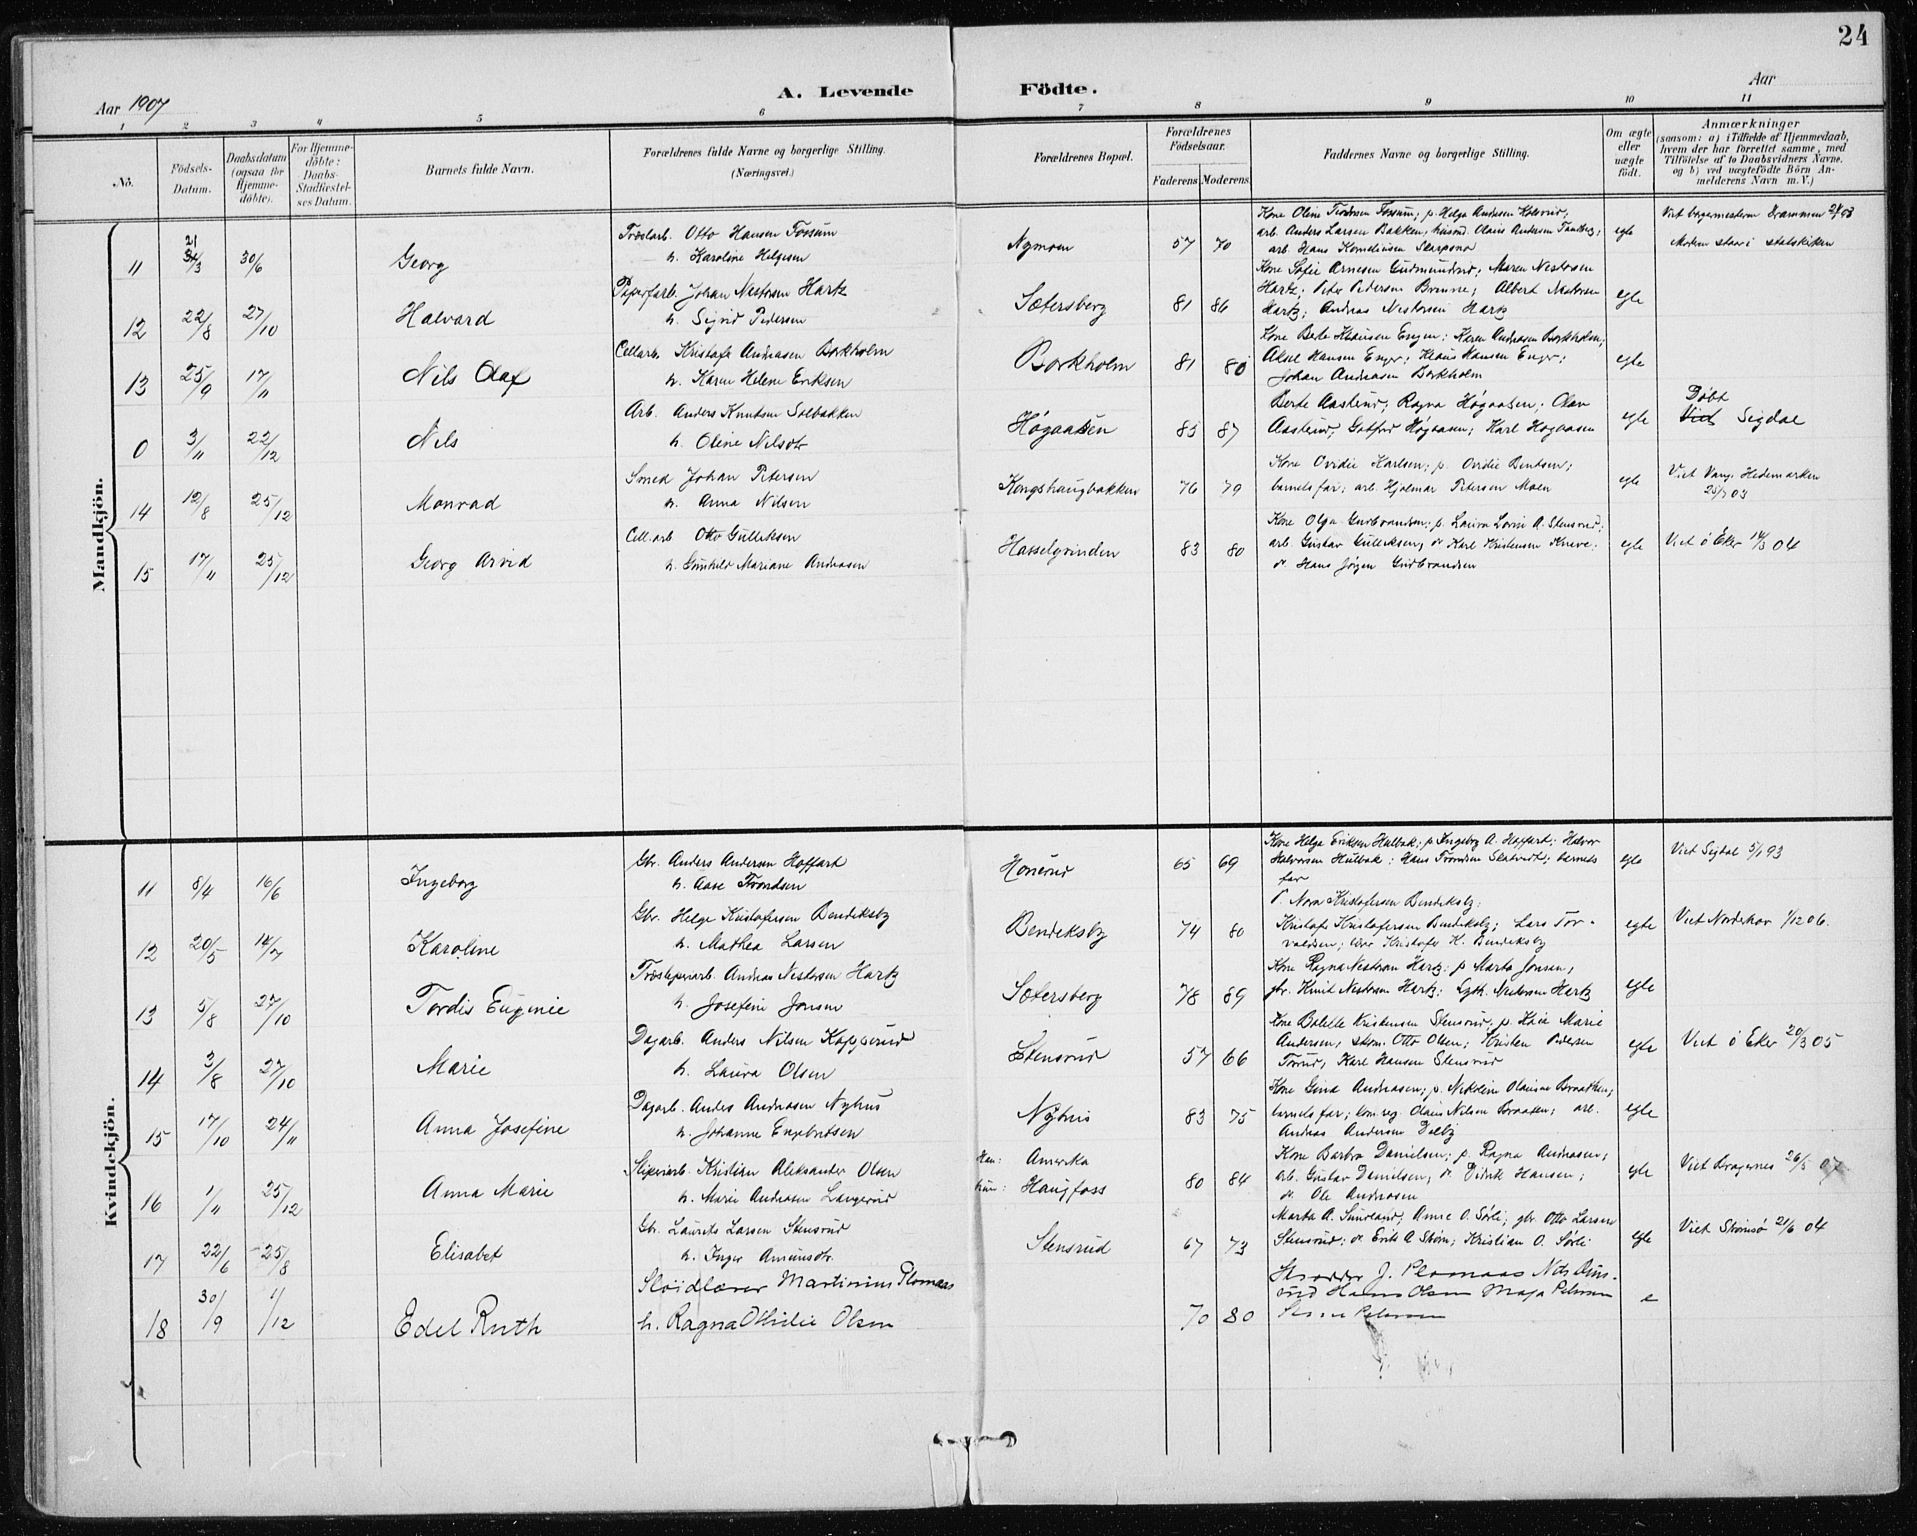 24
Aar 1907
A. Levende Födte.
Aar
1 2 3 4 5 6 7 8 9 10 11
No.
Födsels-Datum.
Daabsdatum (ogsaa for Hjemme-döbte).
For Hjemme-döbte: Daabs-Stadfæstel-ses Datum.
Barnets fulde Navn.
Forældrenes fulde Navne og borgerlige Stilling. (Næringsvei.)
Forældrenes Bopæl.
Forældrenes Födselsaar.
Faderens Moderens
Faddernes Navne og borgerlige Stilling.
Om ægte eller uægte födt.
Anmærkninger
(saasom: a) i Tilfælde af Hjemmedaab, hvem der har forrettet samme, med Tilföielse af to Daabsvidners Navne, og b) ved uægtefödte Börn An-melderens Navn m. V.)
Mandkjön.
11 21/3 30/6 Georg
Otto Hansen Fossum
h. Karoline Helgesen
Nymoen 57 70
Kone Oline Fossum; p. Helga Andersen
arb. Anders Larsen Bakken; Olaus Andersen
arb. Hans Korneliusen
egte
Viet borgermesteren Drammen
Moderen staar i statskirken
12 22/8 27/10 Halvard
Papirfarb. Johan Nestorsen Hartz
h. Sigrid Pedersen
Sætersberg 81 86
Kone Sofie Arnesen Gudmundrud; Maren Nestorsen
Hartz; Peter Pedersen; Albert Nestorsen
Hartz; Andreas Nestorsen Hartz
egte
13 25/9 17/11 Nils Olaf
Cellarb. Kristofer Andreasen Borkholm
h. Karen Helene Eriksen
Borkholm 81 80
Kone Berte Klausen Enger; Karen Andreasen Borkholm;
Aksel Hansen Enger; Klaus Hansen Enger;
Johan Andreasen Borkholm
egte
0 3/11 22/12 Nils
Arb. Anders Knutsen Solbakken
h. Oline Nilsdtr
Høgaasen 83 87
Berte Aasterud; Ragna Høgaasen; Olav
Aasterud; Gotfred Høgaasen; Karl Høgaasen
egte
Døbt
Viet Sigdal
14 12/8 25/12 Monrad
Smed Johan Petersen
h. Anna Nilsen
Kongshaugbakken 76 79
Kone Ovidie Karlsen; p. Ovidie Bentsen;
barnets far; arb. Hjalmar Petersen Moen
egte
Viet Vang, Hedemarken
03
15 17/11 25/12 Georg Arvid
Cell.arb. Otto Gulliksen
h. Gunhild Mariane Andreasen
Hasselgrinden 83 80
Kone Olga Gudbrandsen; p. Laura Lovise A. Stensrud;
arb. Gustav Gulliksen; do Karl Kristensen
do Hans Jørgen Gudbrandsen
egte
Viet ø Eker 04
Kvindekjön.
11 8/4 16/6 Ingeborg
Gbr. Anders Andersen Hoffart
h. Aase Trondsen
Honerud 65 69
Kone Helga Eriksen Hulbak; p. Ingeborg A. Hoffart; Halvor
Halvorsen Hulbak; Hans Trondsen; barnets
far
egte
Viet Sigdal 93
12 20/5 14/7 Karoline
Gbr. Helge Kristofersen Bendiksby
h. Mathea Larsen
Bendiksby 74 80
P. Nora Kristofersen Bendiksby;
Kristofer Kristofersen Bendiksby; Lars Tor-
valdsen; Kristofer H. Bendiksby
egte
Viet Norderhov 1/12 06.
13 5/8 27/10 Tordis Eugenie
Andreas Nestorsen Hartz
h. Josefine Jonsen
Sætersberg 78 89
Kone Ragna Nestorsen Hartz; p. Marta Jonsen;
gbr. Knut Nestorsen Hartz; Nestorsen Hartz
egte
14 3/8 27/10 Marie
Dagarb. Anders Nilsen Kopperud
h. Laura Olsen
Stensrud 57 66
Kone Bolette Kristensen Stensrud; p. Marie
Andersen; Otto Olsen; Kristen Pedersen
Torrud; Karl Hansen Stensrud
egte
Viet ø Eker 20/3 05
15 17/10 24/11 Anna Josefine
Dagarb. Anders Andreasen Nyhus
h. Johanne Engebretsen
Nyhus 83 75
Kone Gina Andreasen; p. Nikoline Olausen Braathen;
barnets far; Olaus Nilsen Braaten; arb.
Andreas Andersen Dalby
egte
16 1/11 25/12 Anna Marie
Sliperiarb. Kristian Aleksander Olsen
h. Marie Andreasen Langerud
Han: Amerika
Hun: Haugfoss
80 84
Kone Barbro Danielsen; p. Ragna Andreasen;
arb. Gustav Danielsen; do Didrik Hansen;
do Ole Andreasen
egte
Viet Bragernes 26/5 07
17 22/6 25/8 Elisabet
Gbr. Laurits Larsen Stensrud
h. Inger Amundsdtr.
Stensrud 67 73
Marta A. Sundland; Anne O. Sørli; gbr. Otto Larsen
Stensrud; do Erik A Strøm; Kristian O. Sørli
egte
Viet Strømsø 21/6 04
18 30/9 1/12 Edel Ruth
Sløidlærer Martinius Plomaas
h. Ragna Othilie Olsen
70 80
J. Plomaas Nils
Hans Olsen Maja Petersen
Petersen
e